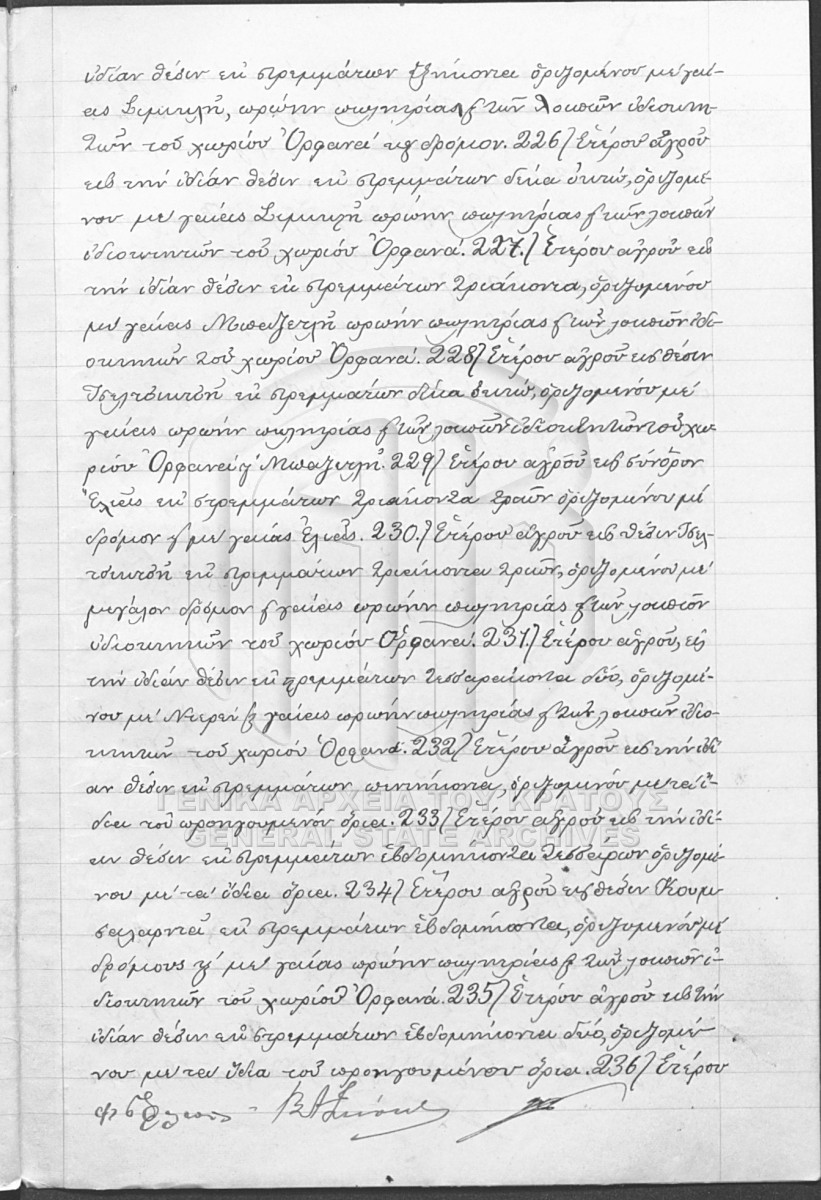 ἰδίαν θέσιν ἐκ στρεμμάτων ἑξήκοντα ὁριζομένου μὲ γαί-
ας Σιμικλῆ, πρώην πωλητρίας ϗ τῶν λοιπῶν ἰδιοκτη-
τῶν τοῦ χωρίου Ὀρφανά ϗ δρόμον. 226) Ἑτέρου ἀγροῦ
εἰς τὴν ἰδίαν θέσιν ἐκ στρεμμάτων δέκα ὀκτώ, ὁριζομέ-
νου μὲ γαίας Σιμικλῆ πρώην πωλητρίας ϗ τῶν λοιπῶν
ἰδιοκτητῶν τοῦ χωρίου Ὀρφανά. 227.) Ἑτέρου ἀγροῦ εἰς
τὴν ἰδίαν θέσιν ἐκ στρεμμάτων τριάκοντα, ὁριζομένου
μὲ γαίας Μπαζετλῆ πρώην πωλητρίας ϗ τῶν λοιπῶν ἰδι-
οκτητῶν τοῦ χωρίου Ὀρφανά. 228) Ἑτέρου ἀγροῦ εἰς θέσιν
Τσελτσικτσῆ ἐκ στρεμμάτων δέκα ὀκτώ, ὁριζομένου μὲ
γαίας πρώην πωλητρίας ϗ τῶν λοιπῶν ἰδιοκτητῶν τοῦ χω-
ρίου Ὀρφανά ϗ Μπαζετλῆ. 229) Ἑτέρου ἀγροῦ εἰς σύνορον
Ἐλιᾶς ἐκ στρεμμάτων τριάκοντα τριῶν ὁριζομένου μὲ
δρόμον ϗ μὲ γαίας Ἐλιᾶς. 230.) Ἑτέρου ἀγροῦ εἰς θέσιν Τσελ-
τσικτσῆ ἐκ στρεμμάτων τριάκοντα τριῶν, ὁριζομένου μὲ
μεγάλον δρόμον ϗ γαίας πρώην πωλητρίας ϗ τῶν λοιπῶν
ἰδιοκτητῶν τοῦ χωρίου Ὀρφανά. 231.) Ἑτέρου ἀγροῦ, εἰς
τὴν ἰδίαν θέσιν ἐκ στρεμμάτων τεσσαράκοντα δύο, ὁριζομέ-
νου μὲ ϗ γαίας πρώην πωλητρίας ϗ τῶν λοιπῶν ἰδιο-
κτητῶν τοῦ χωρίου Ὀρφανά. 232) Ἑτέρου ἀγροῦ εἰς τὴν ἰδί-
αν θέσιν ἐκ στρεμμάτων πεντήκοντα, ὁριζομένου μὲ τὰ ἴ-
δια τοῦ προηγουμένου ὅρια. 233) Ἑτέρου ἀγροῦ εἰς τὴν ἰδί-
αν θέσιν ἐκ στρεμμάτων ἑβδομήκοντα τεσσάρων ὁριζομέ-
νου μὲ τὰ ἴδια ὅρια. 234) Ἑτέρου ἀγροῦ εἰς θέσιν Κουμ
σαλαρντά ἐκ στρεμμάτων ἑβδομήκοντα, ὁριζομένου μὲ
δρόμους ϗ μὲ γαίας πρώην πωλητρίας ϗ τῶν λοιπῶν ἰ-
διοκτητῶν τοῦ χωρίου Ὀρφανά. 235) Ἑτέρου ἀγροῦ εἰς τὴν
ἰδίαν θέσιν ἐκ στρεμμάτων ἑβδομήκοντα δύο, ὁριζομέ-
νου μὲ τὰ ἴδια τοῦ προηγουμένου ὅρια. 236) Ἑτέρου
ΓΕΝΙΚΑ ΑΡΧΕΙΑ ΤΟΥ ΚΡΑΤΟΥΣ
GENERAL STATE ARCHIVES